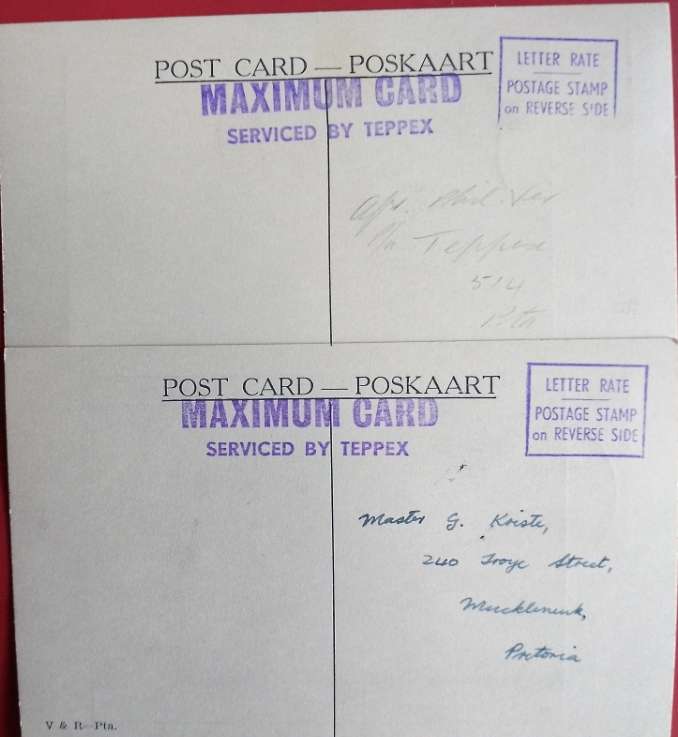 POST CARD — POSKAART
MAXIMUM CARD
SERVICED BY TEPPEX
LETTER RATE
POSTAGE STAMP
on REVERSE SIDE
Teppex
514
Pta
POST CARD — POSKAART
MAXIMUM CARD
SERVICED BY TEPPEX
LETTER RATE
POSTAGE STAMP
on REVERSE SIDE
Master G. Kriste,
240 Troye Street,
Muckleneuk,
Pretoria
V & R—Pta.